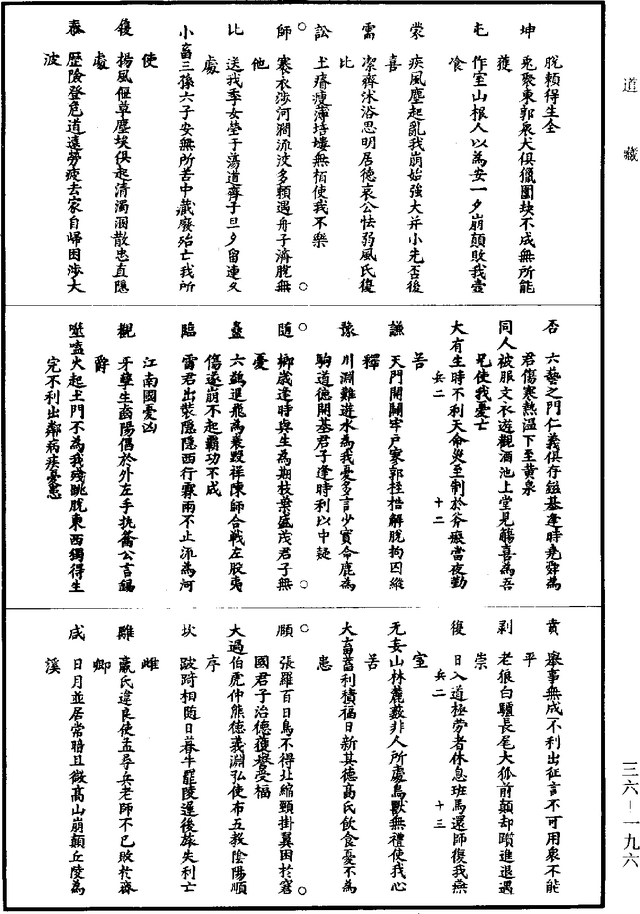 道藏
脫賴得生全
坤 兔聚東郭衆犬俱獵圍缺不成無所能
獲
屯 作室山根人以為安一夕崩顛敗我壼
飡
蒙 疾風塵起亂我崩始強大并小先否後
喜
需 潔齊沐浴思明居德哀公怯弱風氏復
比
訟 土瘠瘦薄培塿無栢使我不樂
師 寒衣涉河澗流沒多賴遇舟子濟脫無
他
比 送我季女瑩于蕩道齊子旦夕留連久
處
小畜三孫六子安無所苦中藏廢殆亡我所
使
復 揚風偃草塵埃俱起清濁溷散忠直隱
處
泰 歷險登危道遠勞疲去家自歸因涉大
波
否 六藝之門仁義俱存鎡基逢時堯舜為
君傷寒熱溫下至黃泉
同人被服文衣遊觀酒池上堂見觴喜為吾
兄使我憂亡
大有生時不利天命災至制於斧瘢當夜勤
苦 兵二 十二
謙 天門開闢牢戶寥郭桎梏解脫拘囚縱
釋
豫 川淵難遊水為我憂多言少實命鹿為
駒道德開基君子逢時利以中疑
隨 鄉歲逢時與生為期枝葉盛茂君子無
憂
蠱 六鷁退飛為衰敗祥陳師合戰左股夷
傷遂崩不起霸功不成
臨 雷君出裝隱隱西行霖雨不止流為河
江南國憂凶
觀 牙孽生齒陽倡於外左手執籥公言錫
爵
噬嗑火起土門不為我殘跳脫東西獨得生
完不利出鄰病疾憂患
賁 舉事無成不利出征言不可用衆不能
平
剥 老狼白獹長尾大狐前顛却躓進退遇
祟
復 日入道極勞者休息班馬還師復我燕
室 兵二 十三
无妄山林麓藪非人所處鳥獸無禮使我心
苦
大畜蓄利積福日新其德高氏飲食憂不為
患
頤 張羅百日鳥不得北縮頸掛翼困於窘
國君子治德獲譽受福
大過伯虎仲熊德義淵弘使布五教陰陽順
序
坎 跛踦相隨日暮牛罷陵遲後旅失利亡
雌
離 嬴氏違良使孟尋兵老師不已敗於齊
卿
咸 日月並居常暗且微高山崩顛丘陵為
溪
三六—一九六